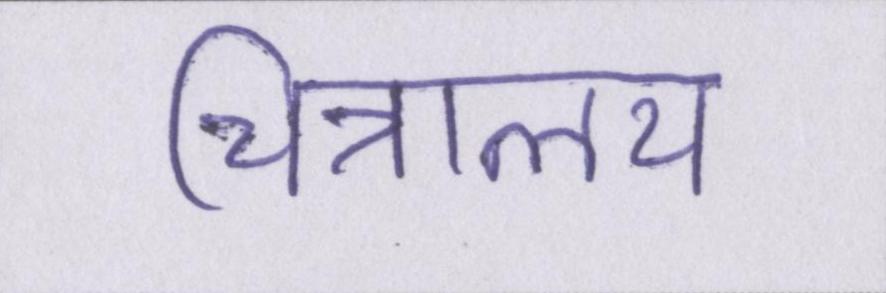 चित्रालय